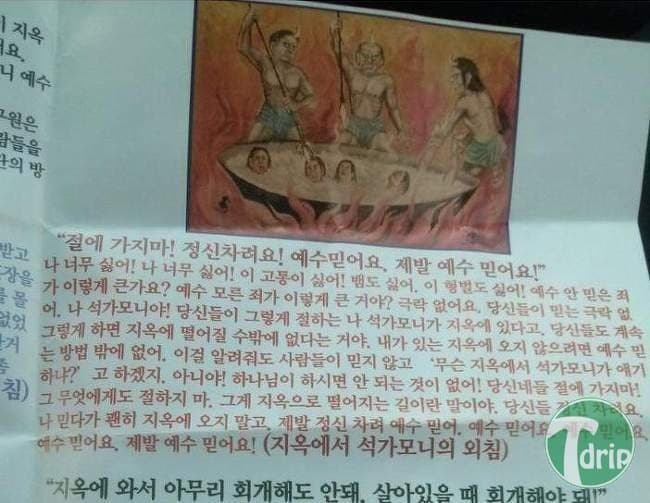 지옥
니 예수
구원은
람들을
간의 방
받고
없었
침)
“절에 가지마! 정신차려요! 예수믿어요, 제발 예수 믿어요!”
나 너무 싫어! 나 너무 싫어! 이 고통이 싫어! 뱀도 싫어, 이 형벌도 싫어! 예수 안 믿은 죄
가 이렇게 큰가요? 예수 모른 죄가 이렇게 큰 거야? 극락 없어요, 당신들이 믿는 극락 없
어, 나 석가모니야! 당신들이 그렇게 절하는 나 석가모니가 지옥에 있다고, 당신들도 계속
그렇게 하면 지옥에 떨어질 수밖에 없다는 거야. 내가 있는 지옥에 오지 않으려면 예수 믿
는 방법 밖에 없어. 이걸 알려줘도 사람들이 믿지 않고 ‘무슨 지옥에서 석가모니가 얘기
하냐?’ 고 하겠지. 아니야! 하나님이 하시면 안 되는 것이 없어! 당신네들 절에 가지마!
그 무엇에게도 절하지 마. 그게 지옥으로 떨어지는 길이란 말이야. 당신들 정신 차려요.
나 믿다가 괜히 지옥에 오지 말고, 제발 정신 차려 예수 믿어, 예수 믿어요, 예수 믿어요,
예수 믿어요, 제발 예수 믿어요! (지옥에서 석가모니의 외침)
“지옥에 와서 아무리 회개해도 안돼, 살아있을 때 회개해야 돼”
T drip